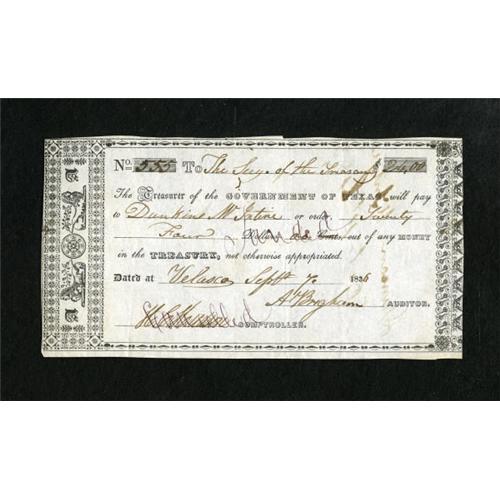 No. 555 To The Secy of the Treasury $24,00
The Treasurer of the GOVERNMENT OF TEXAS will pay
to Dunkins or order, Twenty
Four Dollars Cents, out of any MONEY
in the TREASURY, not otherwise appropriated.
Dated at Velasco Septr 7, 1836
A Brigham AUDITOR.
COMPTROLLER.